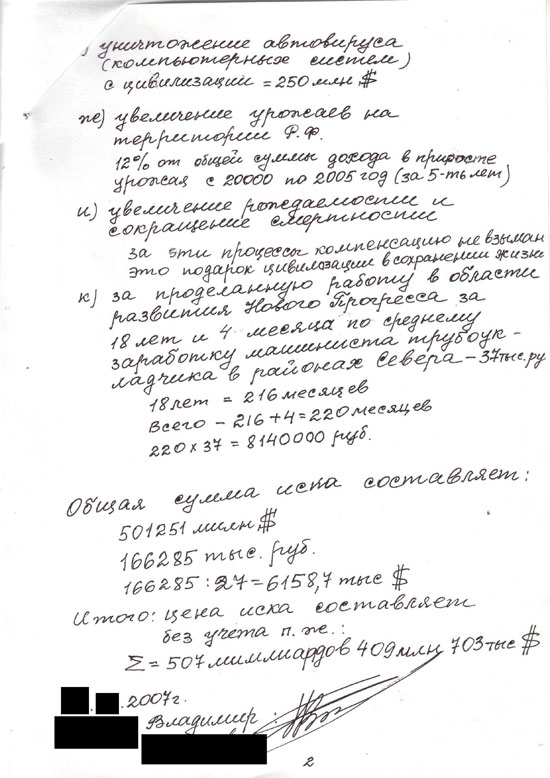 ) уничтожение автовируса
(компьютерных систем)
с цивилизации = 250 млн $
же) увеличение урожаев на
территории Р.Ф.
12% от общей суммы дохода в приросте
урожая с 20000 по 2005 год (за 5-ть лет)
и) увеличение рождаемости и
сокращение смертности
за эти процессы компенсацию не взыман
это подарок цивилизации в сохранении жизне
к) за проделанную работу в области
развития Нового Прогресса за
18 лет и 4 месяца по среднему
заработку машиниста трубоук-
ладчика в районах Севера – 37 тыс. ру
18 лет = 216 месяцев
Всего – 216 + 4 = 220 месяцев
220 х 37 = 8140000 руб.
Общая сумма иска составляет:
501251 милн $
166285 тыс. руб.
166285 : 27 = 6158,7 тыс $
Итого: цена иска составляет
без учета п. же.:
Σ = 507 миммиардов 409 млн 703 тыс $
. .2007г.
Владимир
2